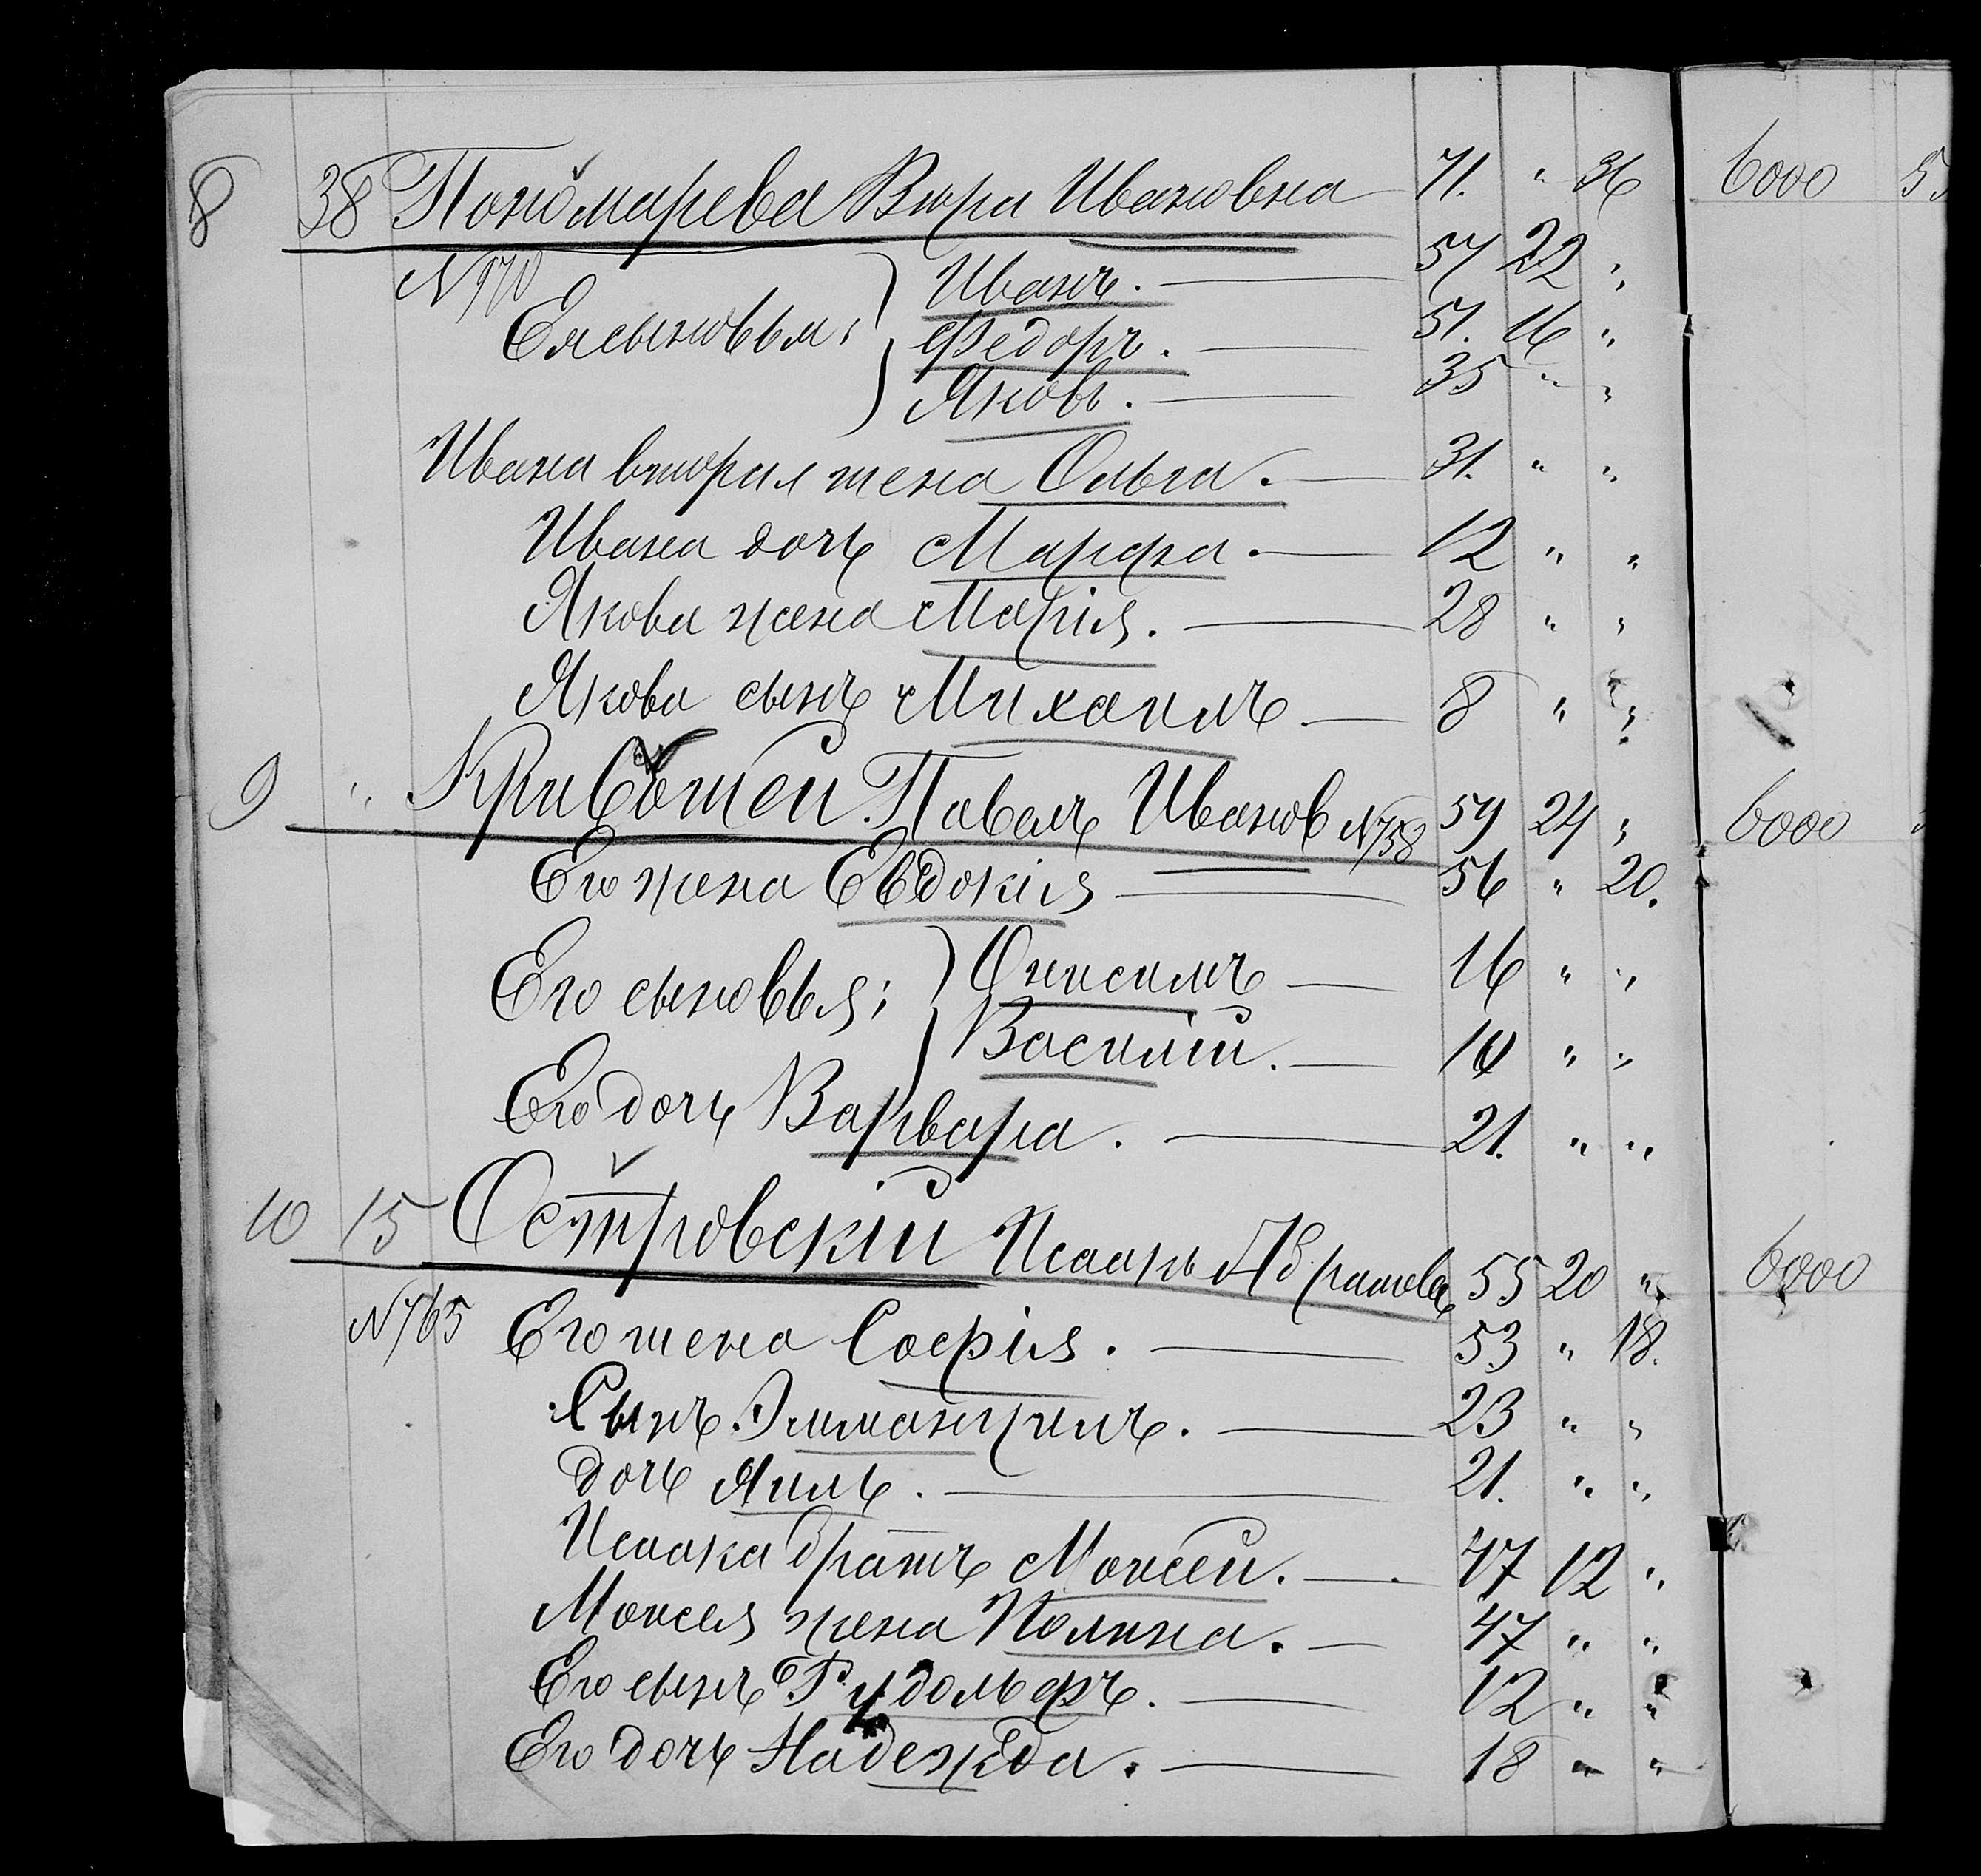 8 38 Пономарева Вѣра Ивановна 71. " 36 6000
N 170
Иванъ. 57 22 "
Ея сыновья: Федоръ. 51. 16 "
Яковъ. 35 " "
Ивана вторая жена Ольга. 31. " "
Ивана дочь Марфа. 12 " "
Якова жена Марія. 28 " "
Якова сынъ Михаилъ 8 " "
9 " Кривошей Павелъ Иванов N 758 59 24 " 6000
Его жена Евдокія 56 " 20.
Его сыновья: Онисимъ 16 " "
Василій. 10 " "
Его дочь Варвара. 21. " "
10 15 Островскій Исаакъ Абрамовъ 55 20 " 6000
N 765 Его жена Софія. 53 " 18.
Сынъ Эммануилъ. 23 " "
дочь Яиль. 21. " "
Исаака братъ Моисей. 47 12 "
Моисея жена Полина. 47 " "
Его сынъ Рудольфъ. 12 " "
Его дочь Надежда. 18 " "